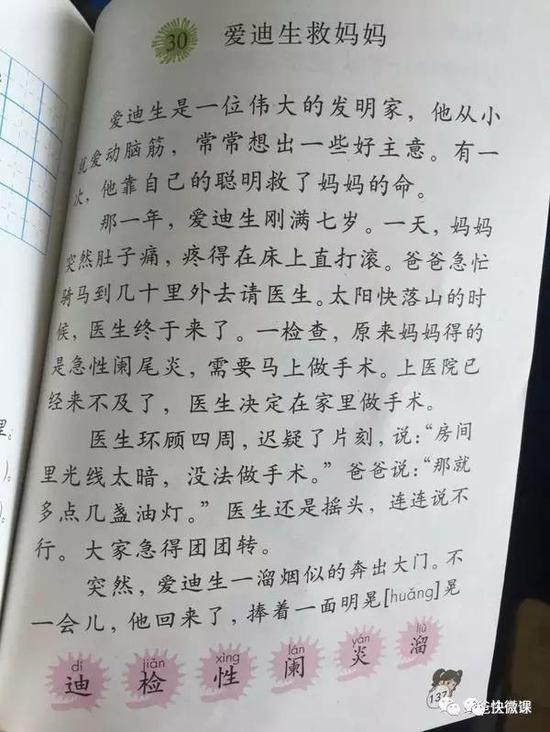 30
爱迪生救妈妈
爱迪生是一位伟大的发明家，他从小
就爱动脑筋，常常想出一些好主意。有一
次，他靠自己的聪明救了妈妈的命。
那一年，爱迪生刚满七岁。一天，妈妈
突然肚子痛，疼得在床上直打滚。爸爸急忙
骑马到几十里外去请医生。太阳快落山的时
候，医生终于来了。一检查，原来妈妈得的
是急性阑尾炎，需要马上做手术。上医院已
经来不及了，医生决定在家里做手术。
医生环顾四周，迟疑了片刻，说：“房间
里光线太暗，没法做手术。”爸爸说：“那就
多点几盏油灯。”医生还是摇头，连连说不
行。大家急得团团转。
突然，爱迪生一溜烟似的奔出大门。不
一会儿，他回来了，捧着一面明晃[huǎng]晃
dí jiǎn xìng lán yán liù
迪 检 性 阑 炎 溜
137
快微课